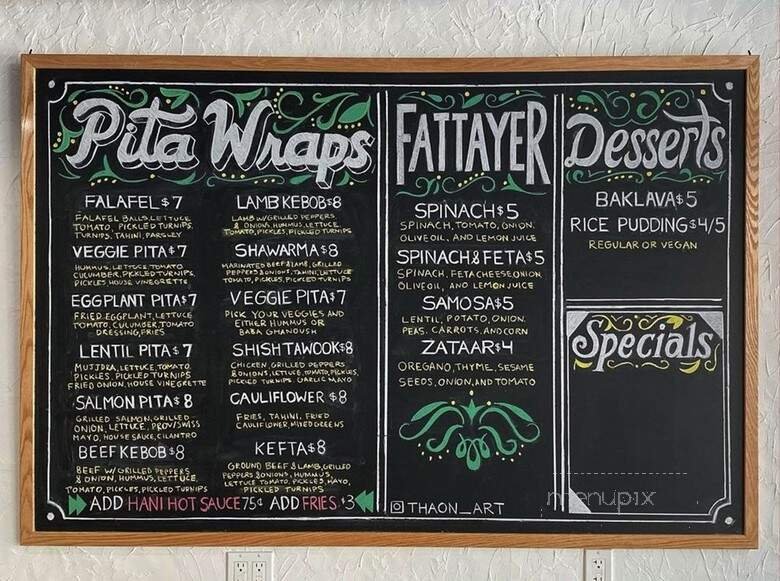 Pita Wraps
FALAFEL $7
FALAFEL BALLS, LETTUCE
TOMATO, PICKLED TURNIPS,
TURNIPS, TAHINI, PARSLEY
VEGGIE PITA $7
HUMMUS, LETTUCE, TOMATO
CUCUMBER, PICKLED TURNIPS,
PICKLES, HOUSE VINEGRETTE
EGGPLANT PITA $7
FRIED EGGPLANT, LETTUCE
TOMATO, CUCUMBER, TOMATO
DRESSING, FRIES
LENTIL PITA $7
MUJDRA, LETTUCE, TOMATO,
PICKLES, PICKLED TURNIPS
FRIED ONION, HOUSE VINEGRETTE
SALMON PITA $8
GRILLED SALMON, GRILLED
ONION, LETTUCE, PROV/SWISS
MAYO, HOUSE SAUCE, CILANTRO
BEEF KEBOB $8
BEEF W/ GRILLED PEPPERS
& ONION, HUMMUS, LETTUCE,
TOMATO, PICKLES, PICKLED TURNIPS
LAMB KEBOB $8
LAMB W/GRILLED PEPPERS
& ONION, HUMMUS, LETTUCE
TOMATO, PICKLES, PICKLED TURNIPS
SHAWARMA $8
MARINATED BEEF & LAMB, GRILLED
PEPPERS & ONIONS, TAHINI, LETTUCE
TOMATO, PICKLES, PICKLED TURNIPS
VEGGIE PITA $7
PICK YOUR VEGGIES AND
EITHER HUMMUS OR
BABA GHANOUSH
SHISH TAWOOK $8
CHICKEN, GRILLED PEPPERS
& ONIONS, LETTUCE, TOMATO, PICKLES,
PICKLED TURNIPS, GARLIC MAYO
CAULIFLOWER $8
FRIES, TAHINI, FRIED
CAULIFLOWER, MIXED GREENS
KEFTA $8
GROUND BEEF & LAMB, GRILLED
PEPPERS & ONIONS, HUMMUS,
LETTUCE TOMATO, PICKLES, MAYO,
PICKLED TURNIPS
ADD HANI HOT SAUCE 75¢ ADD FRIES $3
FATTAYER
SPINACH $5
SPINACH, TOMATO, ONION,
OLIVE OIL, AND LEMON JUICE
SPINACH & FETA $5
SPINACH, FETA CHEESE ONION,
OLIVE OIL, AND LEMON JUICE
SAMOSA $5
LENTIL, POTATO, ONION.
PEAS, CARROTS, AND CORN
ZATAAR $4
OREGANO, THYME, SESAME
SEEDS, ONION, AND TOMATO
THAON_ART
Desserts
BAKLAVA $5
RICE PUDDING $4/5
REGULAR OR VEGAN
Specials
menupix